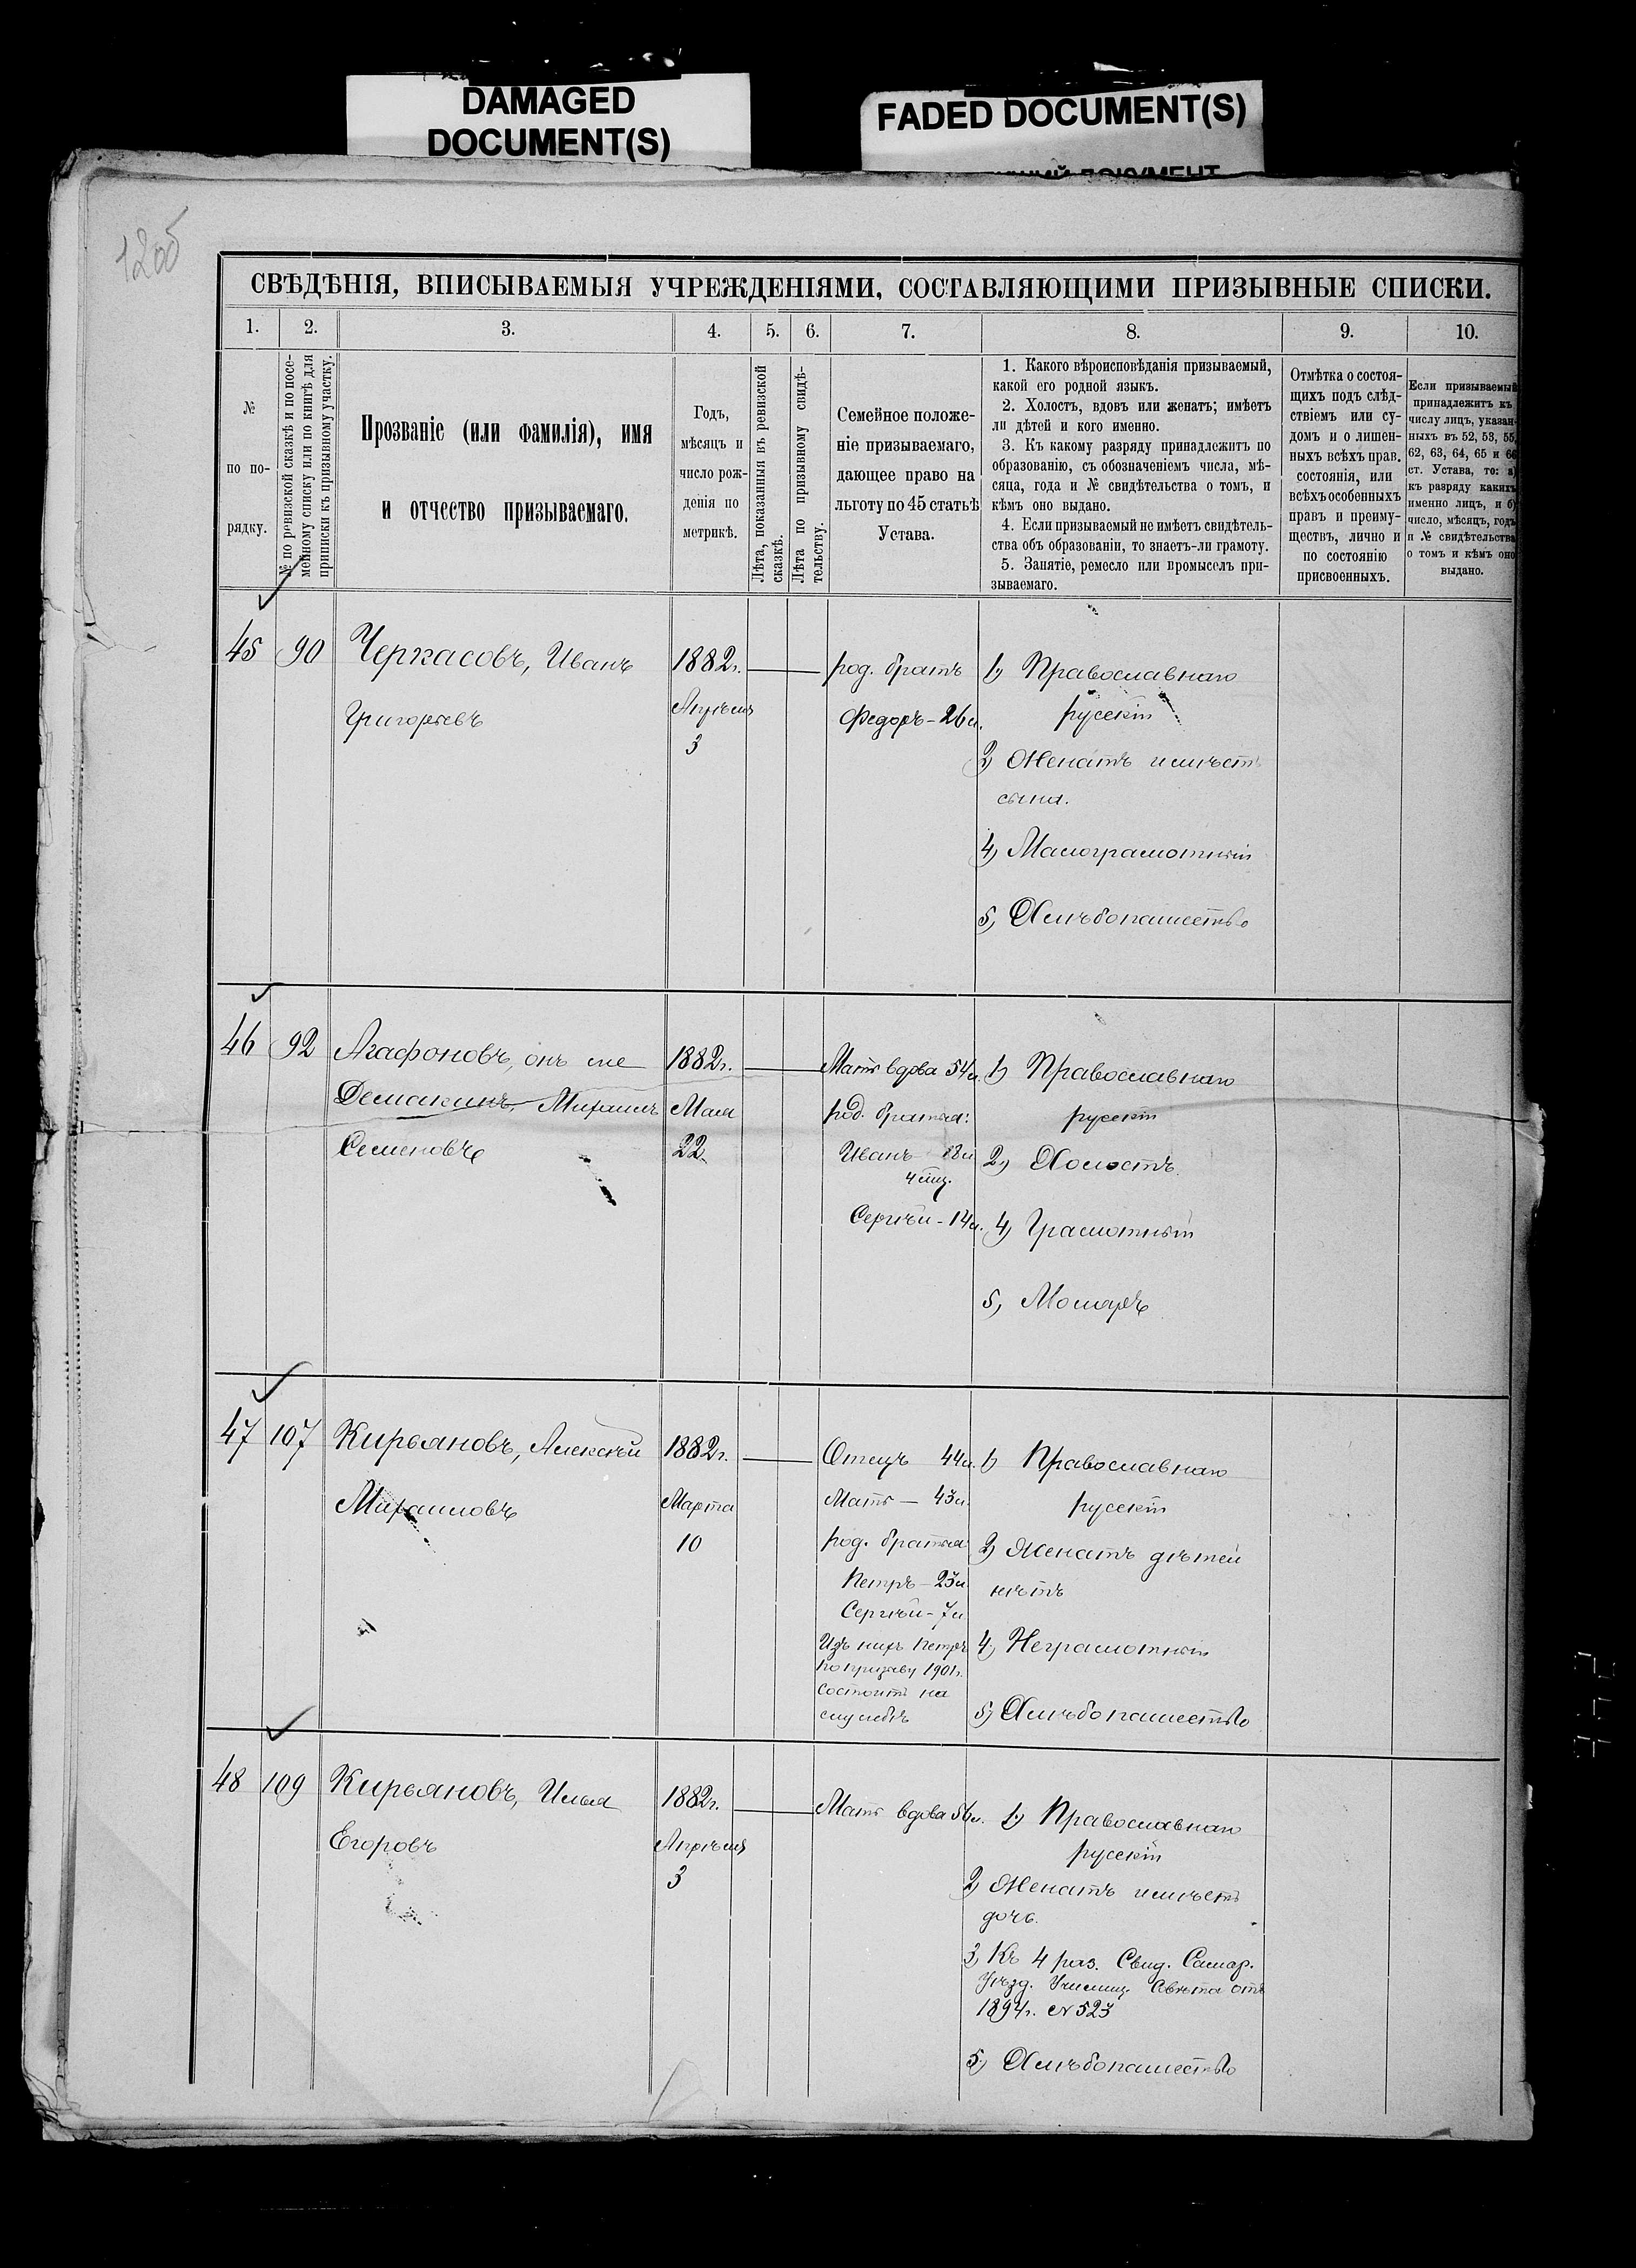 DAMAGED
DOCUMENT(S)
FADED DOCUMENT(S)
120б
СВѢДѢНІЯ, ВПИСЫВАЕМЫЯ УЧРЕЖДЕНІЯМИ, СОСТАВЛЯЮЩИМИ ПРИЗЫВНЫЕ СПИСКИ.
1. 2. 3. 4. 5. 6. 7. 8. 9. 10.
№
по по-
рядку.
№ по ревизской сказкѣ и по посе-
мейному списку или по книгѣ для
приписки къ призывному участку.
Прозваніе (или фамилія), имя
и отчество призываемаго.
Годъ,
мѣсяцъ и
число рож-
денія по
метрикѣ.
Лѣта, показанныя въ ревизской
сказкѣ.
Лѣта по призывному свидѣ-
тельству.
Семейное положе-
ніе призываемаго,
дающее право на
льготу по 45 статьѣ
Устава.
1. Какого вѣроисповѣданія призываемый,
какой его родной языкъ.
2. Холостъ, вдовъ или женатъ; имѣетъ
ли дѣтей и кого именно.
3. Къ какому разряду принадлежитъ по
образованію, съ обозначеніемъ числа, мѣ-
сяца, года и № свидѣтельства о томъ, и
кѣмъ оно выдано.
4. Если призываемый не имѣетъ свидѣтель-
ства объ образованіи, то знаетъ-ли грамоту.
5. Занятіе, ремесло или промыселъ при-
зываемаго.
Отмѣтка о состоя-
щихъ подъ слѣд-
ствіемъ или су-
домъ и о лишен-
ныхъ всѣхъ прав.
состоянія, или
всѣхъ особенныхъ
правъ и преиму-
ществъ, лично и
по состоянію
присвоенныхъ.
Если призываемый
принадлежитъ къ
числу лицъ, указан-
ныхъ въ 52, 53, 55,
62, 63, 64, 65 и 66
ст. Устава, то: а)
къ разряду какихъ
именно лицъ, и б)
число, мѣсяцъ, годъ
и № свидѣтельства
о томъ и кѣмъ оно
выдано.
45 90 Черкасовъ, Иванъ
Григорьевъ
1882г.
Апрѣля
3
род. братъ
Федоръ - 26л.
1) Православнаго
русскій
2) Женатъ имѣетъ
сына.
4) Малограмотный
5) Хлѣбопашество
46 92 Агафоновъ, онъ же
Демакинъ, Михаилъ
Семеновъ
1882г.
Мая
22
Мать вдова 54л.
род. братья:
Иванъ 18л
4 мц.
Сергѣй - 14л.
1) Православнаго
русскій
2) Холостъ.
4) Грамотный
5) Моляръ
47 107 Кирьяновъ, Алексѣй
Михаиловъ
1882г.
Марта
10
Отецъ 44л.
Мать — 43л.
род. братья
Петръ - 23л
Сергѣй - 7л
Изъ нихъ Петръ
по призыву 1901г.
состоитъ на
службѣ
1) Православнаго
русскій
2) Женатъ дѣтей
нѣтъ
4) Неграмотный
5) Хлѣбопашество
48 109 Кирьяновъ, Илья
Егоровъ
1882г.
Апрѣля
3
Мать вдова 56л.
1) Православнаго
русскій
2) Женатъ имѣетъ
дочь.
3) Къ 4 раз. Свид. Самар.
Уѣзд. Училищ. Совѣта отъ
1894г. №523
5) Хлѣбопашество